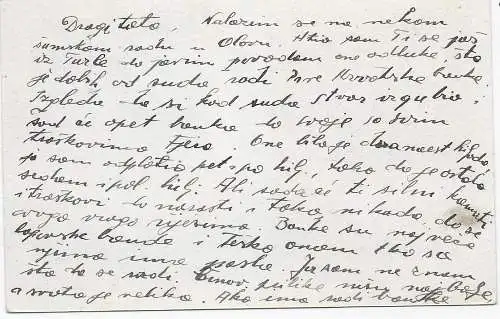 Dragi tata, Nalazim se na nekom
šumskom radu u Olovu. Htio sam Ti se još
iz Tuzle do javim povodom one odluke, što
je dobih od suda radi Prve Hrvatske banke.
Izgleda da si kod suda stvar izgubio.
Sad će opet banka to svoje sa svim
troškovima tjera. One bilo je dvanaest hilj. pa
ja sam odplatio pet i po hilj., tako da je ostalo
sedam i pol. hilj. Ali sada će ti silni kamati
i troškovi to narasti i tako nikada da se
ovoga vraga riješimo. Banke su najveće
lopovske bande i teško onom tko sa
njima ima posla. Ja sam ne znam
šta da se radi. prilike nisu najbolje
a svota je velika. Ako ima radi banke